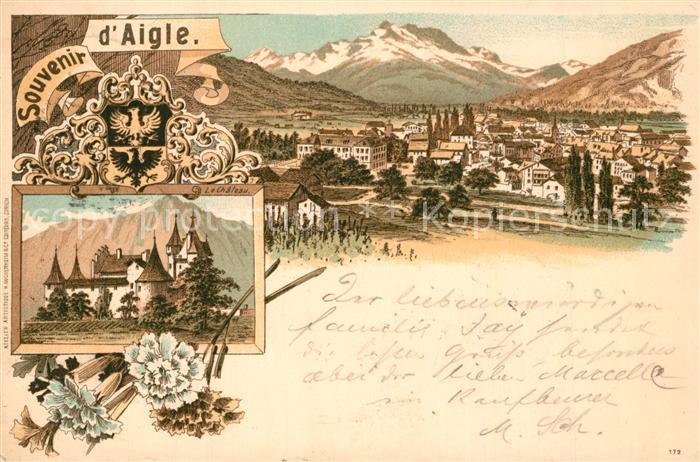 Souvenir
d'Aigle.
Le Château.
copy protection
Der liebenswürdigen
Familie Jay sendet
die besten Grüße, besonders
aber der lieben Marcelle
ein Kaufbeurer
M. Sch.
172